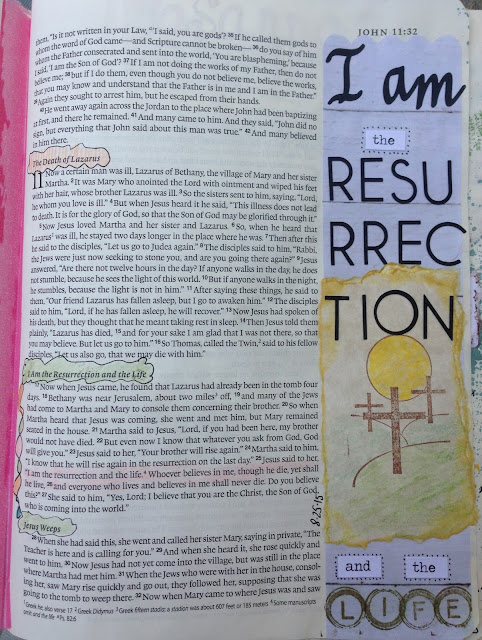 JOHN 11:32
them, "Is it not written in your Law, 'I said, you are gods'? 35 If he called them gods to
whom the word of God came—and Scripture cannot be broken— 36 do you say of him
whom the Father consecrated and sent into the world, 'You are blaspheming,' because
I said, 'I am the Son of God'? 37 If I am not doing the works of my Father, then do not
believe me; 38 but if I do them, even though you do not believe me, believe the works,
that you may know and understand that the Father is in me and I am in the Father."
39 Again they sought to arrest him, but he escaped from their hands.
40 He went away again across the Jordan to the place where John had been baptizing
at first, and there he remained. 41 And many came to him. And they said, "John did no
sign, but everything that John said about this man was true." 42 And many believed
in him there.
The Death of Lazarus
11 Now a certain man was ill, Lazarus of Bethany, the village of Mary and her sister
Martha. 2 It was Mary who anointed the Lord with ointment and wiped his feet
with her hair, whose brother Lazarus was ill. 3 So the sisters sent to him, saying, "Lord,
he whom you love is ill." 4 But when Jesus heard it he said, "This illness does not lead
to death. It is for the glory of God, so that the Son of God may be glorified through it."
5 Now Jesus loved Martha and her sister and Lazarus. 6 So, when he heard that
Lazarus was ill, he stayed two days longer in the place where he was. 7 Then after this
he said to the disciples, "Let us go to Judea again." 8 The disciples said to him, "Rabbi,
the Jews were just now seeking to stone you, and are you going there again?" 9 Jesus
answered, "Are there not twelve hours in the day? If anyone walks in the day, he does
not stumble, because he sees the light of this world. 10 But if anyone walks in the night,
he stumbles, because the light is not in him." 11 After saying these things, he said to
them, "Our friend Lazarus has fallen asleep, but I go to awaken him." 12 The disciples
said to him, "Lord, if he has fallen asleep, he will recover." 13 Now Jesus had spoken of
his death, but they thought that he meant taking rest in sleep. 14 Then Jesus told them
plainly, "Lazarus has died, 15 and for your sake I am glad that I was not there, so that
you may believe. But let us go to him." 16 So Thomas, called the Twin,2 said to his fellow
disciples, "Let us also go, that we may die with him."
I Am the Resurrection and the Life
17 Now when Jesus came, he found that Lazarus had already been in the tomb four
days. 18 Bethany was near Jerusalem, about two miles3 off, 19 and many of the Jews
had come to Martha and Mary to console them concerning their brother. 20 So when
Martha heard that Jesus was coming, she went and met him, but Mary remained
seated in the house. 21 Martha said to Jesus, "Lord, if you had been here, my brother
would not have died. 22 But even now I know that whatever you ask from God, God
will give you." 23 Jesus said to her, "Your brother will rise again." 24 Martha said to him,
"I know that he will rise again in the resurrection on the last day." 25 Jesus said to her,
"I am the resurrection and the life.4 Whoever believes in me, though he die, yet shall
he live, 26 and everyone who lives and believes in me shall never die. Do you believe
this?" 27 She said to him, "Yes, Lord; I believe that you are the Christ, the Son of God,
who is coming into the world."
Jesus Weeps
28 When she had said this, she went and called her sister Mary, saying in private, "The
Teacher is here and is calling for you." 29 And when she heard it, she rose quickly and
went to him. 30 Now Jesus had not yet come into the village, but was still in the place
where Martha had met him. 31 When the Jews who were with her in the house, consol-
ing her, saw Mary rise quickly and go out, they followed her, supposing that she was
going to the tomb to weep there. 32 Now when Mary came to where Jesus was and saw
1 Greek he; also verse 17 2 Greek Didymus 3 Greek fifteen stadia; a stadion was about 607 feet or 185 meters 4 Some manuscripts
omit and the life
I am
the
RESU
RREC
TION
8.25.15
and the
LIFE